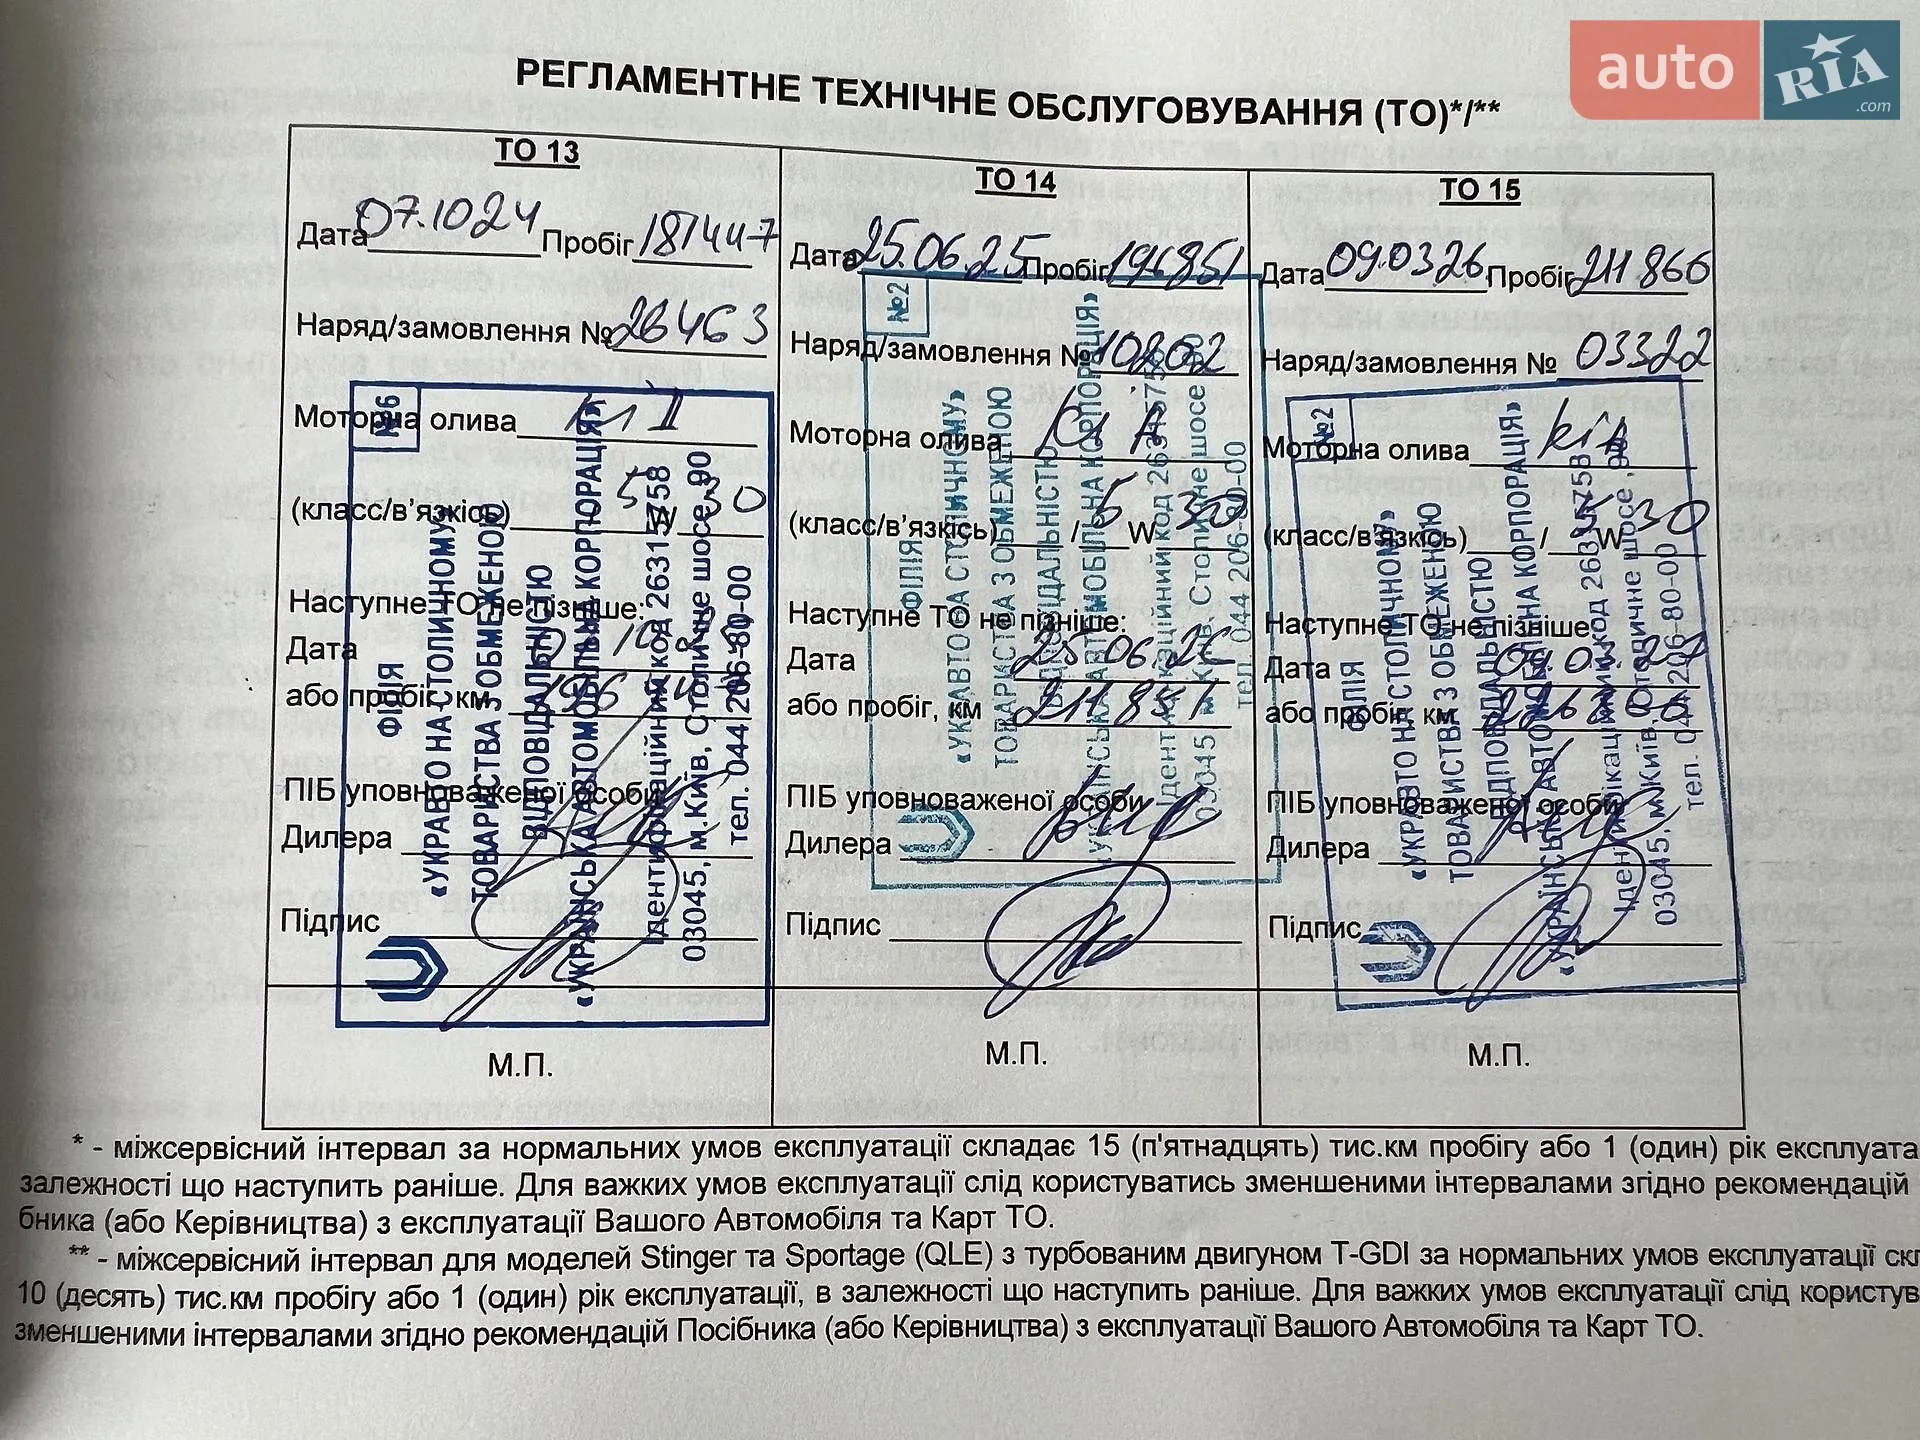 auto RIA .com
РЕГЛАМЕНТНЕ ТЕХНІЧНЕ ОБСЛУГОВУВАННЯ (ТО)*/**
ТО 13
Дата 07.10 24 Пробіг 181447
Наряд/замовлення № 26463
Моторна олива
(класс/в'язкісь) 5 W 30
Наступне ТО не пізніше:
Дата
або пробіг, км 196 447
ПІБ уповноваженої особи
Дилера
Підпис
М.П.
№6
ФІЛІЯ
«УКРАВТО НА СТОЛИЧНОМУ»
ТОВАРИСТВА З ОБМЕЖЕНОЮ
ВІДПОВІДАЛЬНІСТЮ
«УКРАЇНСЬКА АВТОМОБІЛЬНА КОРПОРАЦІЯ»
Ідентифікаційний код 26315758
03045, м.Київ, Столичне шосе,90
тел. 044 206-80-00
ТО 14
Дата 25.06.25 Пробіг 196851
Наряд/замовлення № 10202
Моторна олива KIA
(класс/в'язкісь) / 5 W 30
Наступне ТО не пізніше:
Дата 25.06.26
або пробіг, км 211 851
ПІБ уповноваженої особи
Дилера
Підпис
М.П.
№2
ФІЛІЯ
«УКРАВТО НА СТОЛИЧНОМУ»
ТОВАРИСТВА З ОБМЕЖЕНОЮ
ВІДПОВІДАЛЬНІСТЮ
«УКРАЇНСЬКА АВТОМОБІЛЬНА КОРПОРАЦІЯ»
Ідентифікаційний код 26315758
03045, м.Київ, Столичне шосе ,90
тел. 044 206-80-00
ТО 15
Дата 09.03 26 Пробіг 211 866
Наряд/замовлення № 03322
Моторна олива kia
(класс/в'язкісь) / 5 W 30
Наступне ТО не пізніше:
Дата 09.03.27
або пробіг, км 226 866
ПІБ уповноваженої особи
Дилера
Підпис
М.П.
№2
ФІЛІЯ
«УКРАВТО НА СТОЛИЧНОМУ»
ТОВАРИСТВА З ОБМЕЖЕНОЮ
ВІДПОВІДАЛЬНІСТЮ
«УКРАЇНСЬКА АВТОМОБІЛЬНА КОРПОРАЦІЯ»
Ідентифікаційний код 26315758
03045, м.Київ, Столичне шосе ,90
тел. 044 206-80-00
* - міжсервісний інтервал за нормальних умов експлуатації складає 15 (п'ятнадцять) тис.км пробігу або 1 (один) рік експлуата
залежності що наступить раніше. Для важких умов експлуатації слід користуватись зменшеними інтервалами згідно рекомендацій
бника (або Керівництва) з експлуатації Вашого Автомобіля та Карт ТО.
** - міжсервісний інтервал для моделей Stinger та Sportage (QLE) з турбованим двигуном T-GDI за нормальних умов експлуатації скл
10 (десять) тис.км пробігу або 1 (один) рік експлуатації, в залежності що наступить раніше. Для важких умов експлуатації слід користув
зменшеними інтервалами згідно рекомендацій Посібника (або Керівництва) з експлуатації Вашого Автомобіля та Карт ТО.